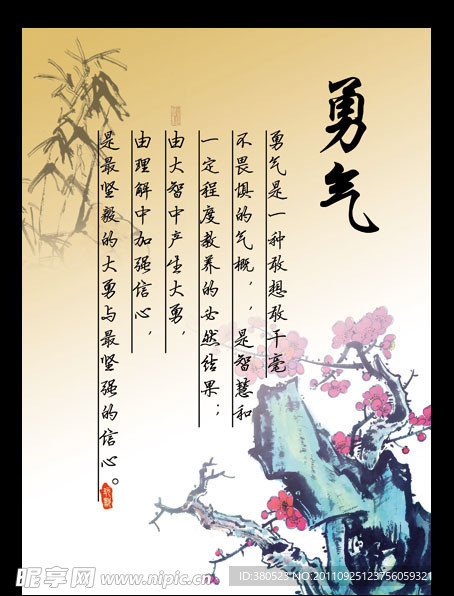 勇气
勇气是一种敢想敢干毫
不畏惧的气概，，是智慧和
一定程度教养的必然结果；
由大智中产生大勇，
由理解中加强信心，
是最坚毅的大勇与最坚强的信心。
昵享网 www.nipic.cn
ID:380523 NO:20110925123756059321